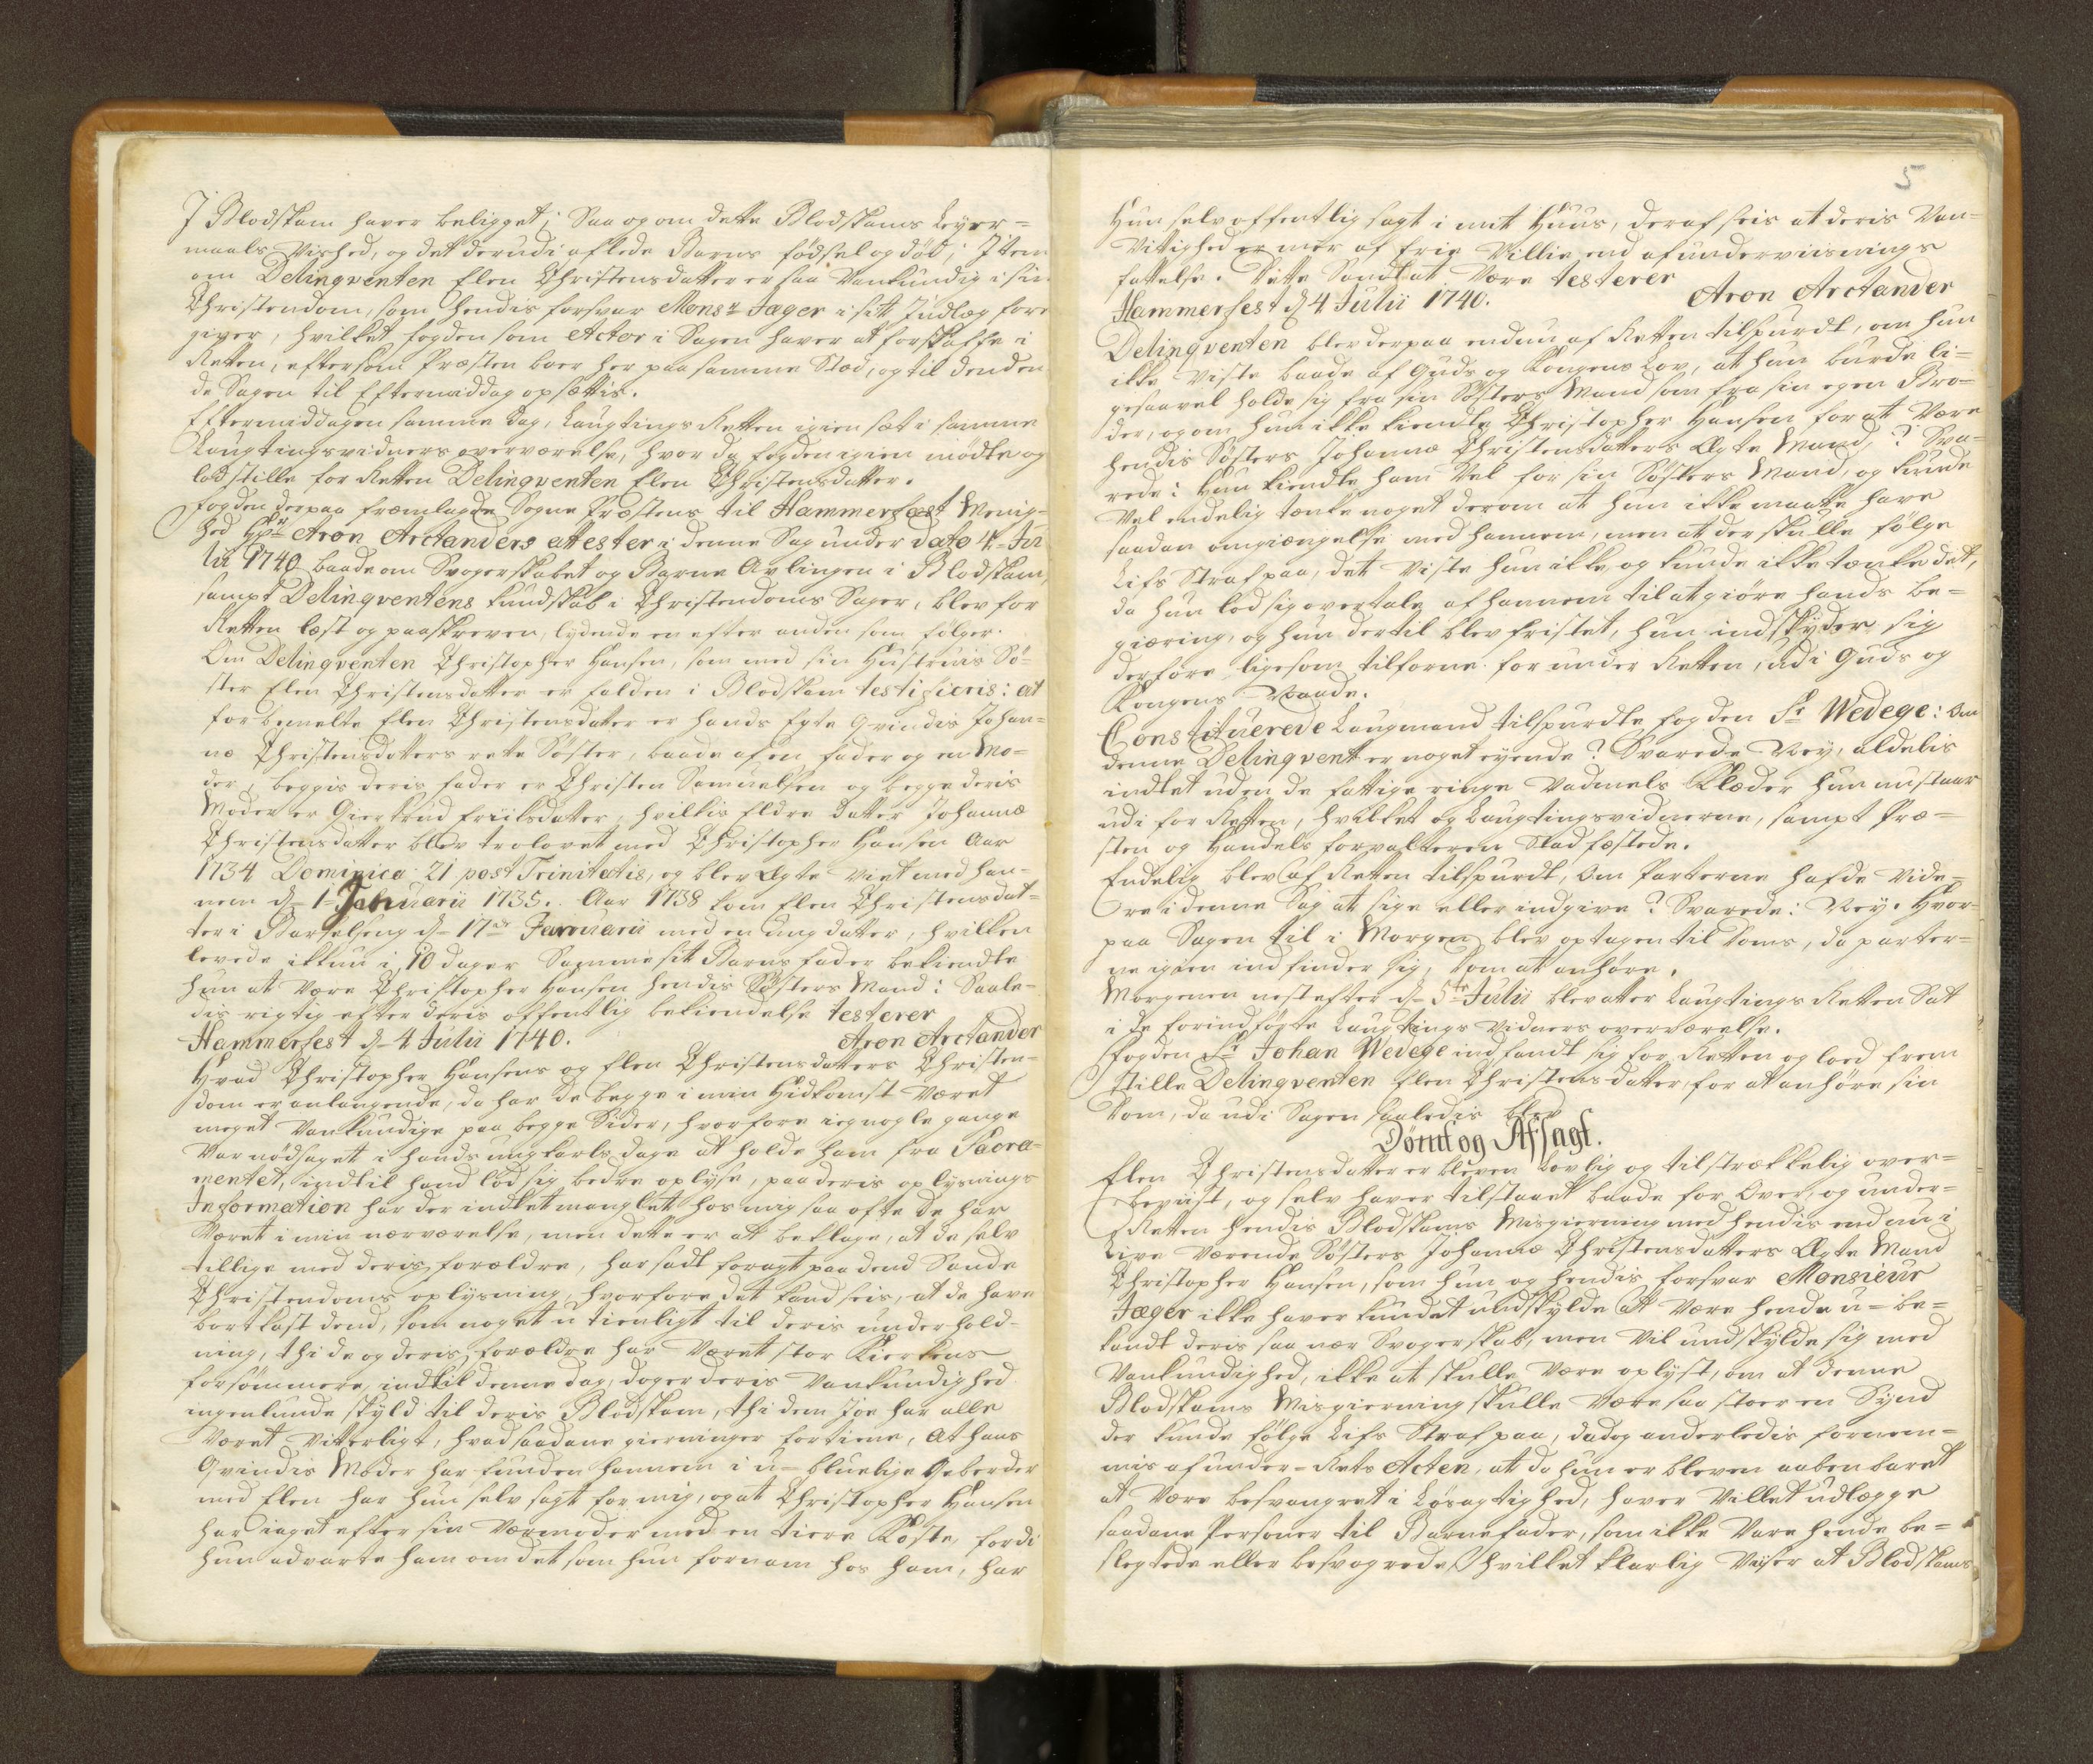 I Blodskam haver beligget; Saa og om dette Blodskams Leyer=
maals Vished, og det derudi aflede Barns födsel og död; Item
om Delinqventen Elen Christensdatter er saa Vankundig i sin
Christendom, som hendis forsvar Monsr Jæger i sitt Indlæg fore
giver, hvilket fogden som Actor i Sagen haver at forskaffe i
Retten, eftersom Præsten boer her paa samme Stæd, og til den En
de Sagen til Eftermiddag opsættis.
Eftermiddagen samme dag, Laugtings Retten igien sat i samme
Laugtingsvidners overværelse, hvor da fogden igien mödte og
lod stille for Retten Delinqventen Elen Christensdatter.
fogden derpaa fremlagde Sogne Præstens til Hammerfæst Menig-
hed Hr Aron Arctanders attester i denne Sag under dato 4 Ju
lii 1740 baade om Svogerskabet og Barne Avlingen i Blodskam,
sampt Delinqventens kundskab i Christendoms Sager, blev for
Retten læst og paaskreven, lydende en efter anden som fölger.
Om Delinqventen Christopher Hansen, som med sin Hustruis Sö=
ster Elen Christensdatter er falden i Blodskam testificeris: at
forbemelte Elen Christensdatter er hands Egte Qvindis Johan=
næ Christensdatters rette Söster, baade af en fader og en Mo=
der, beggis deris fader er Christen Samuelsen og begge deris
Moder er Giertrud friiksdatter, hvilkis Eldre datter Johanne
Christensdatter blev trolovet med Christopher Hansen Aar
1734 Dominica 21 post Trinitatis, og blev Ægte Viet med han-
nem d 1 Januarii 1735. Aar 1738 kom Elen Christensdat=
ter i Barselseng d 17de Januarii med en ung datter, hvilken
levede ikkun i 10 dager Samme sit Barns fader bekiendte
hun at være Christopher Hansen hendis Sösters Mand: Saale-
dis rigtig efter deris offentlig bekiendelse testerer
Hammerfest d 4 Julii 1740. Aron Arctander
Hvad Christopher Hansens og Elen Christensdatters Christen=
dom er anlangende, da har de begge i min Hidkomst Været
meget Vankundige paa begge Sider, hvorfore ieg nogle gange
Var nödsaget i hands ungkarls dage at holde ham fra Sacra-
mentet, indtil hand lod sig bedre oplyse, paa deris oplysnings
Information har der indtet manglet hos mig saa ofte de har
Været i min nærværelse, men dette er at beklage, at de selv
tillige med deris forældre, har sadt foragt paa dend Sande
Christendoms oplysning, hvorfore det kand seis, at de have
bortkast dend, som noget utienligt til deris underhold-
ning, thi de og deris forældre har Været stor Kierkens
forsömmere, indtil denne dag, dog er deris Vankundighed
ingenlunde skyld til deris Blodskam, thi dem Joe har alle
Været Vitterligt, hvad saadane gierninger fortiene, At hans
Qvindis Moder har funden hannem i u-bluelige Geberder
med Elen har hun selv sagt for mig, og at Christopher Hansen
har iaget efter sin Værmoder med en tiere Koste, fordi
hun advarte ham om det som hun fornam hos ham, har
5
Hun selv offentlig sagt i mit Huus, deraf seis at deris Van-
Vittighed er mer af frie Villie end af underviisnings
fattelse. Dette Sandt at Være testerer
Hammerfest d 4 Julii 1740. Aron Arctander
Delinqventen blev derpaa endnu af Retten tilspurdt, om hun
ikke Viste baade af Guds og Kongens Lov, at hun burde li=
gesaavel holde sig fra sin Sösters Mand som fra sin egen Bro=
der, og om hun ikke kiendte Christopher Hansen for at Være
hendis Sösters Johannæ Christensdatters Ægte Mand? Sva-
rede: Hun kiendte ham Vel for sin Sösters Mand, og kunde
Vel endelig tænke noget derom at hun ikke maatte have
saadan omgiængelse med hannem, men at der skulle fölge
Lifs Straf paa, det Viste hun ikke og kunde ikke tænke det,
da hun lod sig overtale af hannem til at giöre hands be=
giæring, og hun dertil blev fristet, hun indskyder sig
derfore ligesom tilforne for under Retten, udi Guds og
Kongens Naade.
Constituerede Laugmand tilspurdte fogden Sr Wedege: Om
denne Delinqvent er noget eyende? Svarede Ney, aldelis
indtet uden de fattige ringe Vadmels Klæder hun nu staar
udi for Retten, hvilket og Laugtingsvidnerne, sampt Præ=
sten og Handels forvalteren Stadfæstede.
Endelig blev af Retten tilspurdt, Om Parterne hafde Vide=
re i denne Sag at sige eller indgive? Svarede: Ney. Hvor-
paa Sagen til i Morgen blev optagen til doms, da parter=
ne igien indfinder sig, dom at anhöre.
Morgenen nest efter d 5te Julii blev atter Laugtings Retten Sat
i de forindförte Laugtings Vidners overværelse.
fogden Sr Johan Wedege indfandt sig for Retten og lod frem
stille Delinqventen Elen Christensdatter, for at anhöre sin
dom, da udi Sagen saaledis blev
Dömt og Afsagt.
Elen Christensdatter er bleven Lovlig og tilstrækkelig over=
beviist, og selv haver tilstaaet baade for Over, og under=
Retten hendis Blodskams Misgierning med hendis end nu i
Live Værende Sösters Johannæ Christensdatters Ægte Mand
Christopher Hansen, som hun og hendis forsvar Monsieur
Jæger ikke haver kundet undskylde at Være hende u-be=
kandt deris saa nær Svogerskab, men vil undskylde sig med
Vankundighed, ikke at skulle Være oplyst, om at denne
Blodskams Misgierning skulle Være saa stoer en Synd
der kunde fölge Lifs Straf paa, da dog anderledis fornem=
mis af under-Rets Acten, at da hun er bleven aabenbaret
at Være besvangret i Lösagtighed, haver Villet udlægge
saadane Personer til Barnefader, som ikke Vare hende be=
slegtede eller besvogrede, hvilket klarlig Viser at Blodskams